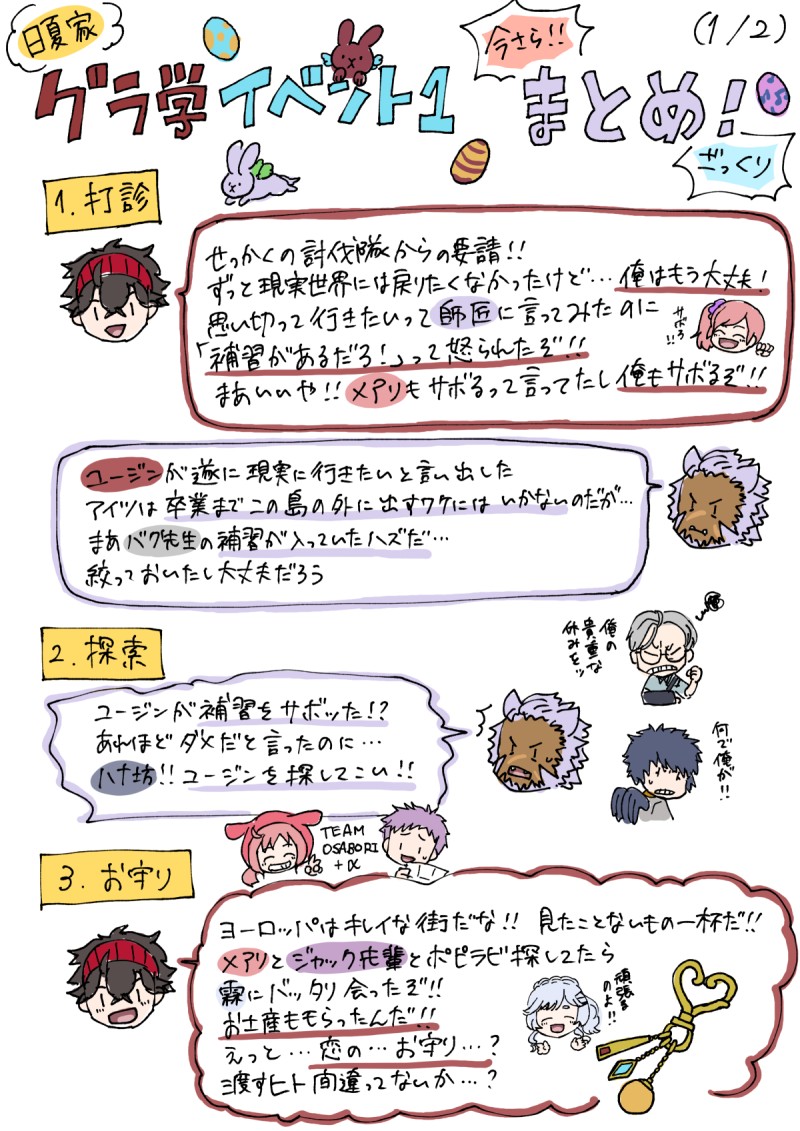 日夏家
(1/2)
今さら!!
グラ学イベント1 まとめ!
ざっくり
1.打診
せっかくの討伐隊からの要請!!
ずっと現実世界には戻りたくなかったけど…俺はもう大丈夫!
思い切って行きたいって師匠に言ってみたのに
「補習があるだろ!」って怒られたぞ!!
まあいいや!!メアリもサボるって言ってたし俺もサボるぞ!!
サボろ!!
ユージンが遂に現実に行きたいと言い出した
アイツは卒業までこの島の外に出すワケにはいかないのだが…
まあバク先生の補習が入っていたハズだ…
絞っておいたし大丈夫だろう
2.探索
俺の
貴重な
休みをッ
ユージンが補習をサボッた!?
あれほどダメだと言ったのに…
ハナ坊!!ユージンを探してこい!!
何で俺が!!
TEAM
OSABORI
+α
3.お守り
ヨーロッパはキレイな街だな!! 見たことないもの一杯だ!!
メアリとジャック先輩とポピラビ探してたら
霖にバッタリ会ったぞ!!
お土産ももらったんだ!!
えっと…恋の…お守り…?
渡すヒト間違ってないか…?
頑張る
のよ!!